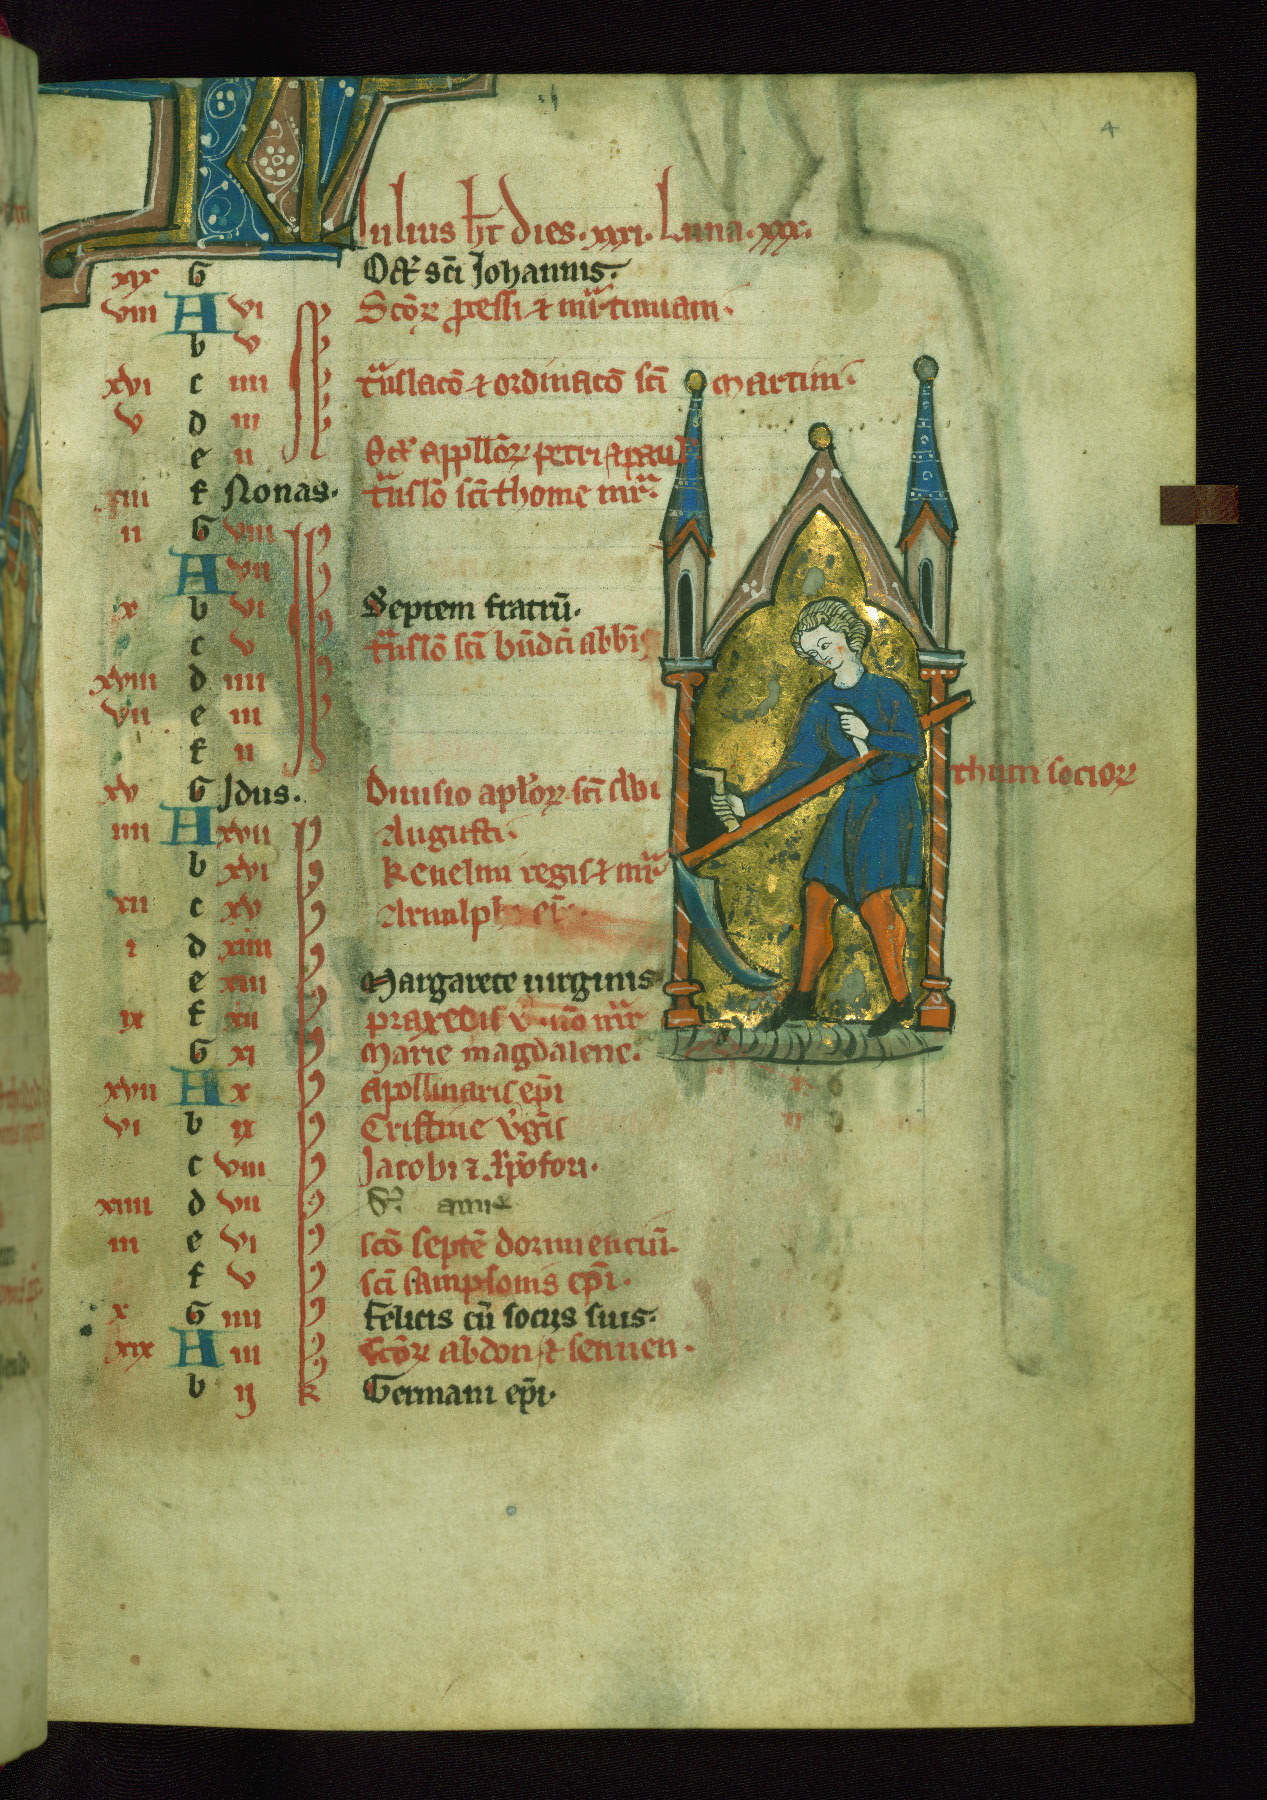 4
Iulius ht dies .xxxi. Luna .xxx.
xix G Oct' sci Johannis.
viii A vi Scor processi & mr tiniani.
b v
xvi c iiii trnslaco & ordinaco sci martini.
v d iii
e ii Oct' appllor petri & pauli
xiii f Nonas. trnslo sci thome mr.
ii G viii
A vii
x b vi Septem fratru.
c v trnslo sci bndci abbis
xviii d iiii
vii e iii
f ii
xv G Idus. Diuisio aplor. sci
thum socior
iiii A xvii Augusti.
b xvi Kenelmi regis & mr
xii c xv Arnulphi epi.
i d xiiii
e xiii Margarete uirginis
ix f xii praxedis v. non mr
G xi Marie magdalene.
xvii A x Apollinaris epi
vi b ix Cristine vgis
c viii Jacobi & xpofori.
xiiii d vii anne
iii e vi sco septe dormienciu.
f v sci sampsonis epi.
x G iiii Felicis cu sociis suis.
xix A iii Scor abdon & sennen.
b ij k Germani epi.